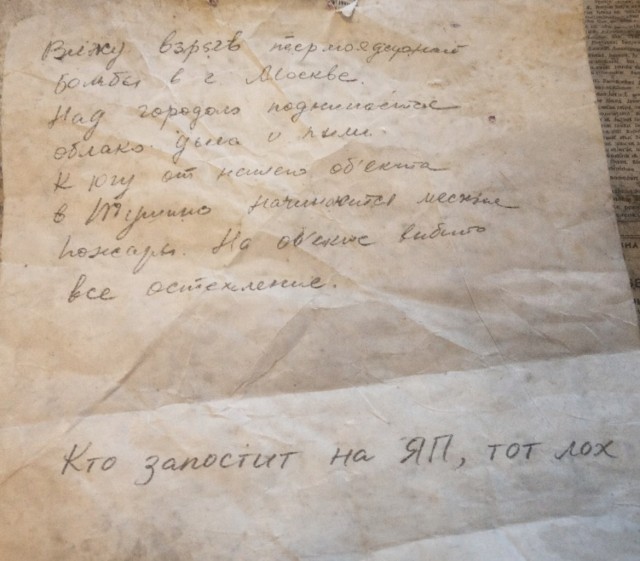 Вижу взрыв термоядерной
бомбы в г. Москве.
Над городом поднимается
облако дыма и пыли.
К югу от нашего об'екта
в Тушино начинаются лесные
пожары. На об'екте выбито
все остекление.
Кто запостит на ЯП, тот лох